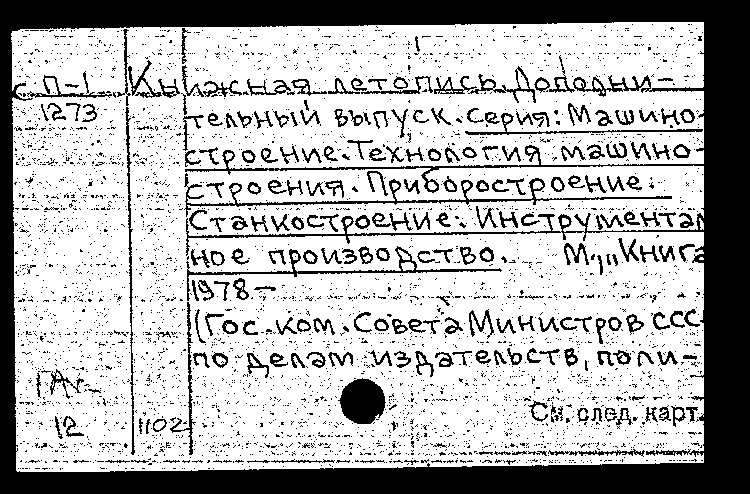 с П-1 Книжная летопись. Дополни-
1273 тельный выпуск. Серия: Машино-
строение. Технология машино-
строения. Приборостроение.
Станкостроение. Инструментал
ное производство. М., „Книга
1978 —
(Гос. ком. Совета Министров ССС
по делам издательств, поли-
См. след. карт.
12 1102